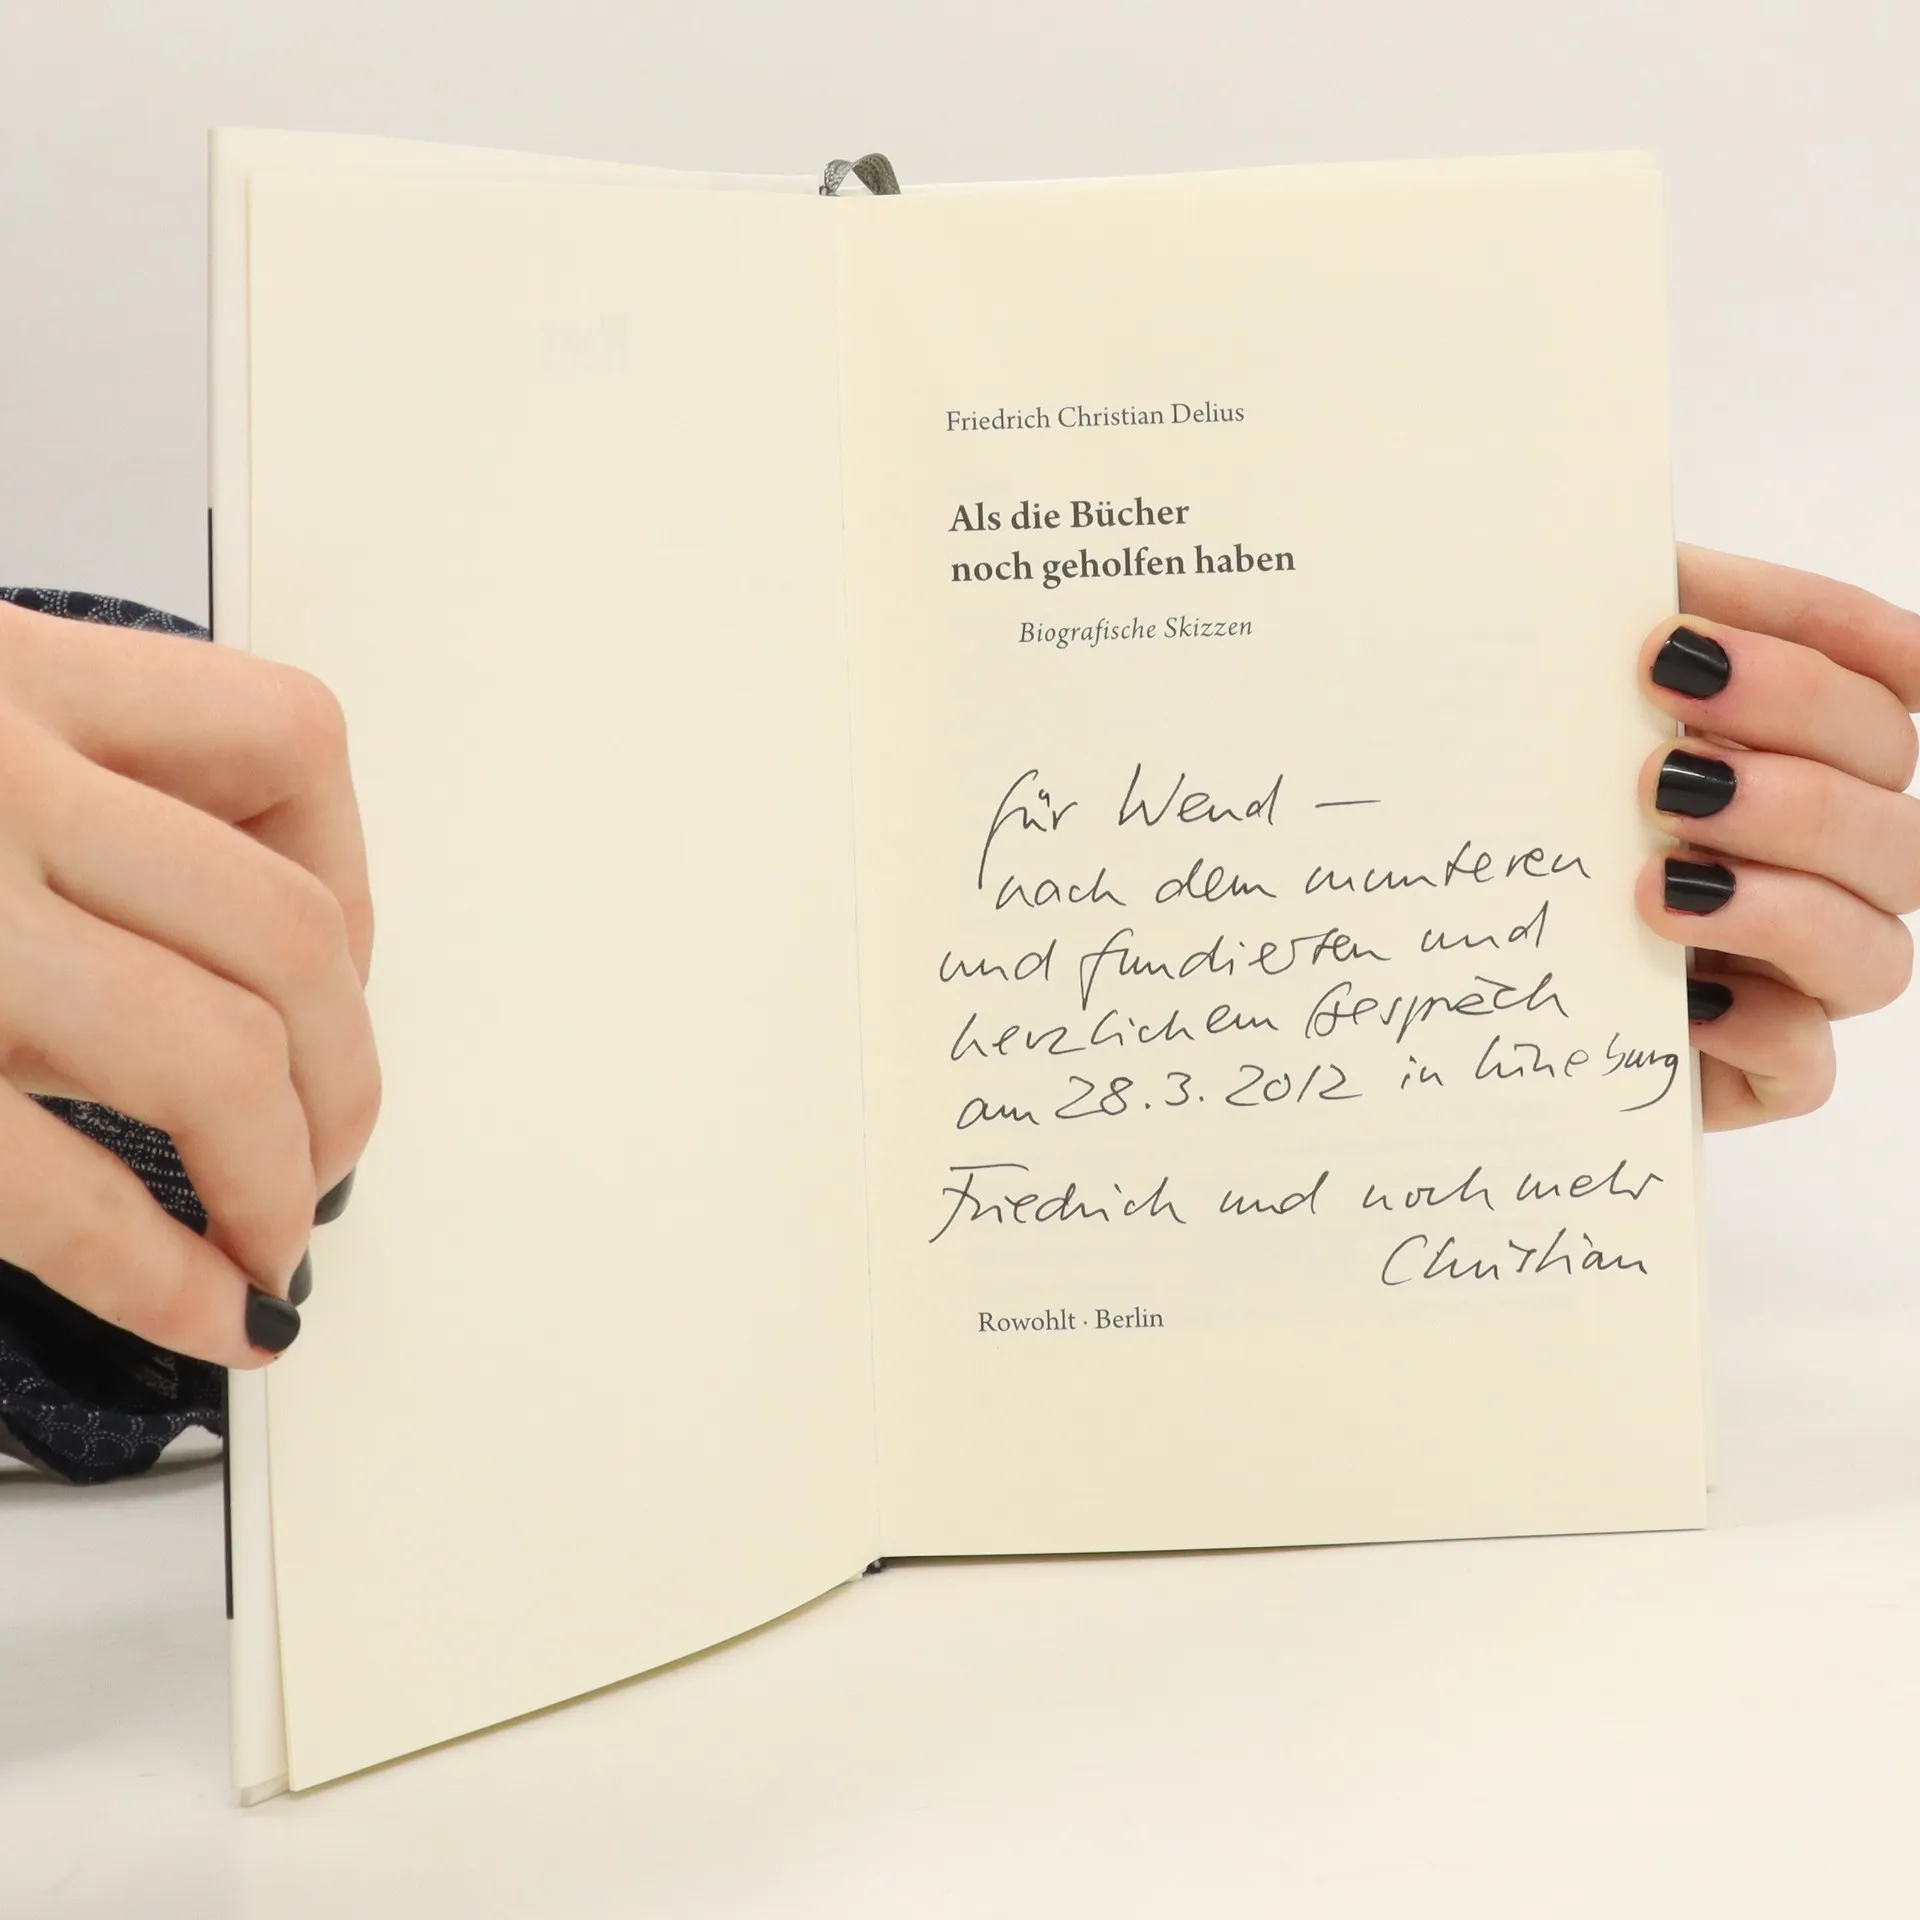 Friedrich Christian Delius
Als die Bücher
noch geholfen haben
Biografische Skizzen
für Wend —
nach dem munteren
und fundierten und
herzlichem Gespräch
am 28.3.2012 in Lüneburg
Friedrich und noch mehr
Christian
Rowohlt · Berlin